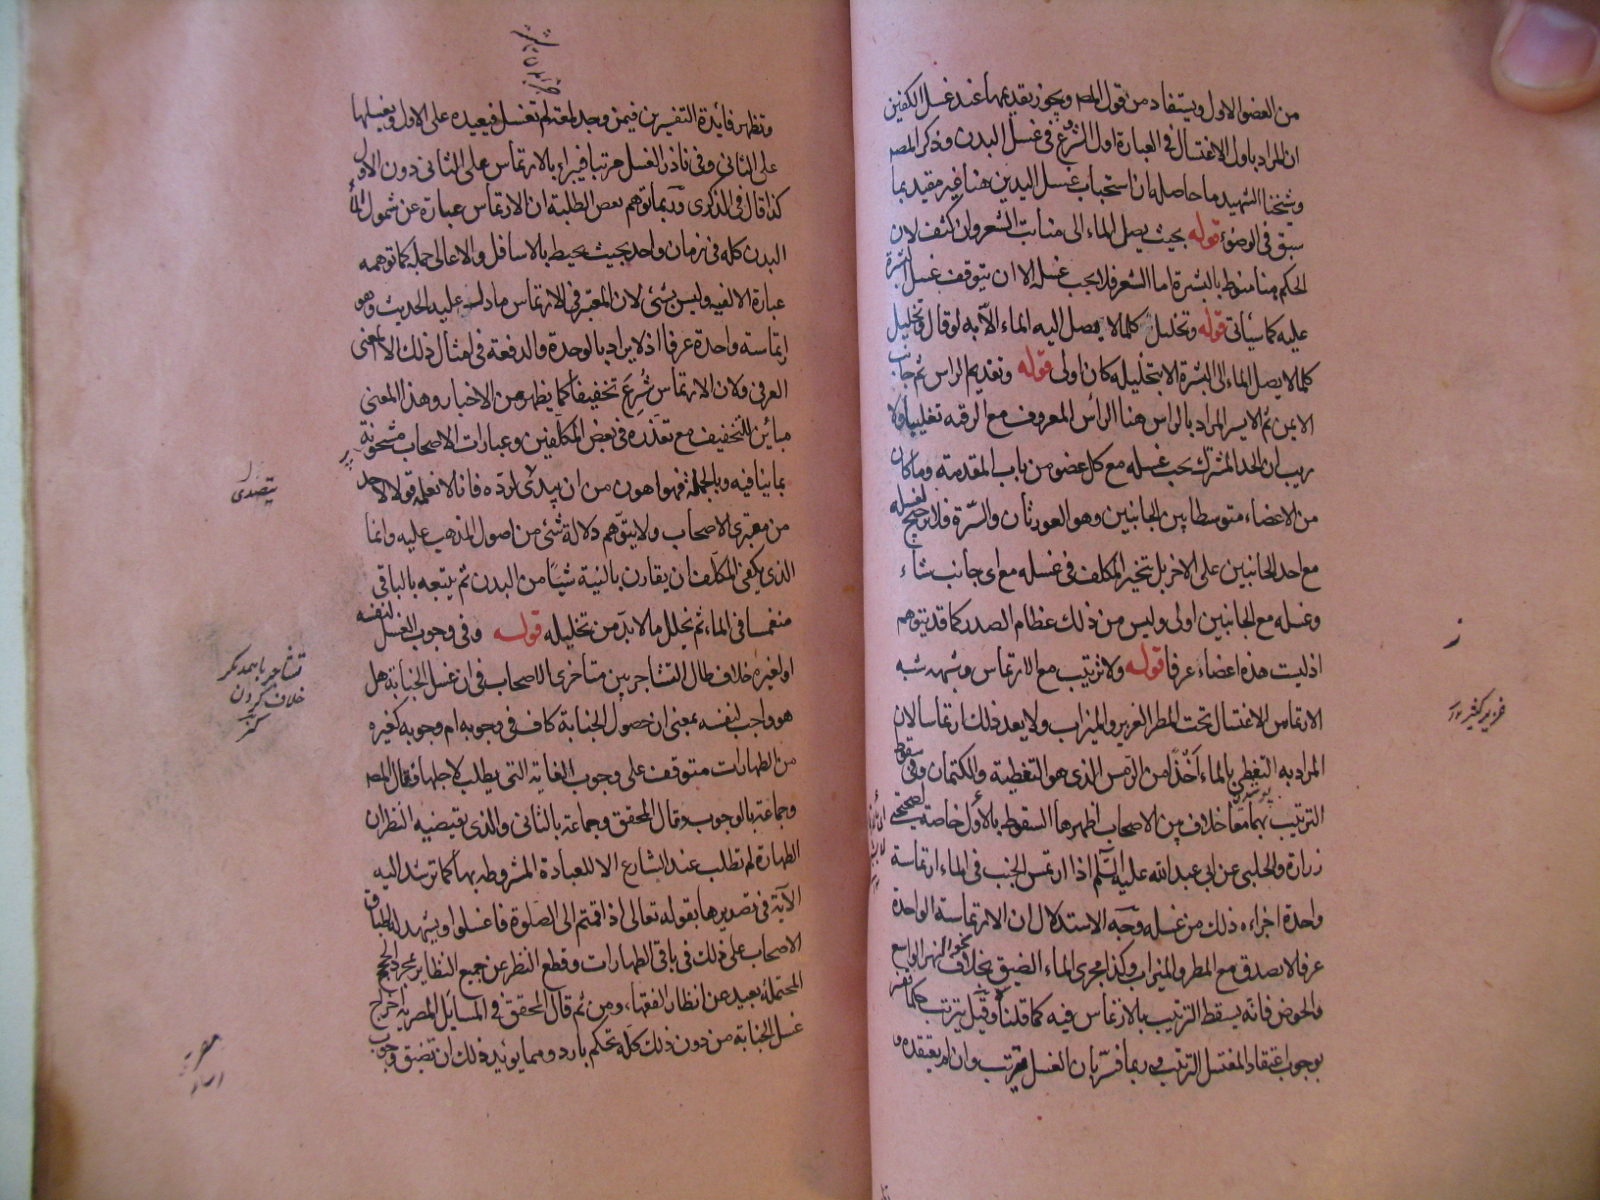 من العضو الاول ويستفاد من قول المصـ ويجوز تقديمها عند غسل الكفين
ان المراد باول الاغتسال في العبارة اول الشروع في غسل البدن وذكر المصـ
وشيخنا الشهيد ما حاصله ان استحباب غسل اليدين هنا غير مقيد بما
سبق في الوضوء قوله بحيث يصل الماء الى منابت الشعر وان كثف لان
الحكم هنا منوط بالبشرة اما الشعر فلا يجب غسله الا ان يتوقف غسل البشرة
عليه كما سيأتي قوله وتخليل كلما لا يصل اليه الماء الا به لو قال وتخليل
كلما لا يصل الماء الى البشرة الا بتخليله كان اولى قوله وتقديم الراس ثم جانب
الايمن ثم الايسر المراد بالراس هنا الرأس المعروف مع الرقبه تغليبا ولا
ريب ان الحد المشترك يجب غسله مع كل عضو من باب المقدمة وما كان
من الاعضاء متوسطا بين الجانبين وهو العورتان والسّرة فلا ترجيح لغسله
مع احد الجانبين على الاخر بل يتخير المكلف في غسله مع اى جانب شاء
وغسله مع الجانبين اولى وليس من ذلك عظام الصدر كما قد يتوهم
اذ ليست هذه اعضاء عرفا قوله ولا ترتيب مع الارتماس وشبهه شبه
الارتماس الاغتسال تحت المطر الغزير والميزاب ولا يعد ذلك ارتماسا لان
المراد به التغطى بالماء اَخْذًا من الرّمس الذى هو التغطية والكتمان وفى سقوط
الترتيب بهما معًا خلاف بين الاصحاب اظهرها السقوط بالأول خاصة لصحيحتى
زرارة والحلبى عن ابى عبد الله عليه السّلم اذا ارتمس الجنب فى الماء ارتماسة
واحدة اجزاءه ذلك من غسله وجه الاستدلال ان الارتماسة الواحدة
عرفا لا يصدق مع المطر والميزاب وكذا مجرى الماء الضيق بخلاف نحو النهر الواسع
والحوض فانه يسقط الترتيب بالارتماس فيه كما قلناه وقيل يترتب حكما فسر
بوجوب اعتقاد المغتسل الترتيب وربما فسّر بان الغسل مترتب وان لم يعتقده
غزير كثير
پوشيدن
وتظهر فائدة التفسيرين فيمن وجد لمعة لم تغسل فيعيده على الاول ويغسلها
على الثانى وفى ناذر الغسل مرتبا فيبراء بالارتماس على الثانى دون الاول
كذا قال في الذكرى وربما توهم بعض الطلبة ان الارتماس عبارة عن شمول الماء
البدن كله فى زمان واحد بحيث يحيط بالاسافل والاعالى جملة كما توهمه
عبارة الالفيه وليس بشئ لان المعتبر فى الارتماس ما دل عليه الحديث وهو
ارتماسة واحدة عرفا اذ لا يراد بالوحدة والدفعة فى امثال ذلك الا المعنى
العرفى ولان الارتماس شُرِعَ تخفيفا كما يظهر من الاخبار وهذا المعنى
مباين للتخفيف مع تعذره فى بعض المكلفين وعبارات الاصحاب مشحونة
بما ينافيه وبالجملة فهو اهون من ان يبدئ لردّه فانا لا نعلمه قولا لاحد
من معتبرى الاصحاب ولا يتوّهم دلالة شئ من اصول المذهب عليه وانما
الذى يكفى المكلف ان يقارن بالنية شيئًا من البدن ثم يتبعه بالباقى
منغمسا فى الماء ثم يخلل ما لا بدّ من تخليله قوله وفى وجوب الغسل لنفسه
او لغيره خلاف طال التشاجر بين متأخرى الاصحاب فى ان غسل الجنابة هل
هو واجب لنفسه بمعنى ان حصول الجنابة كاف فى وجوبه ام وجوبه كغيره
من الطهارات متوقف على وجوب الغاية التى يطلب لاجلها فقال المصـ
وجماعة بالوجوب وقال المحقق وجماعة بالثانى والذى يقتضيه النظر ان
الطهارة لم تطلب عند الشارع الا للعبادة المشروطة بها كما ترشد اليه
الآية فى تصديرها بقوله تعالى اذا قمتم الى الصلوة فاغسلوا ويشهد له اطباق
الاصحاب على ذلك فى باقى الطهارات وقطع النظر عن جميع النظاير بمجرد الحجج
المحتملة بعيد عن انظار الفقهاء ومن ثم قال المحقق فى المسايل المصرية اخراج
غسل الجنابة من دون ذلك كله تحكم بارد ومما يؤيد ذلك ان تضيق وجوب
يتصدى
تشاجر با همديگر
خلاف كردن
كنز